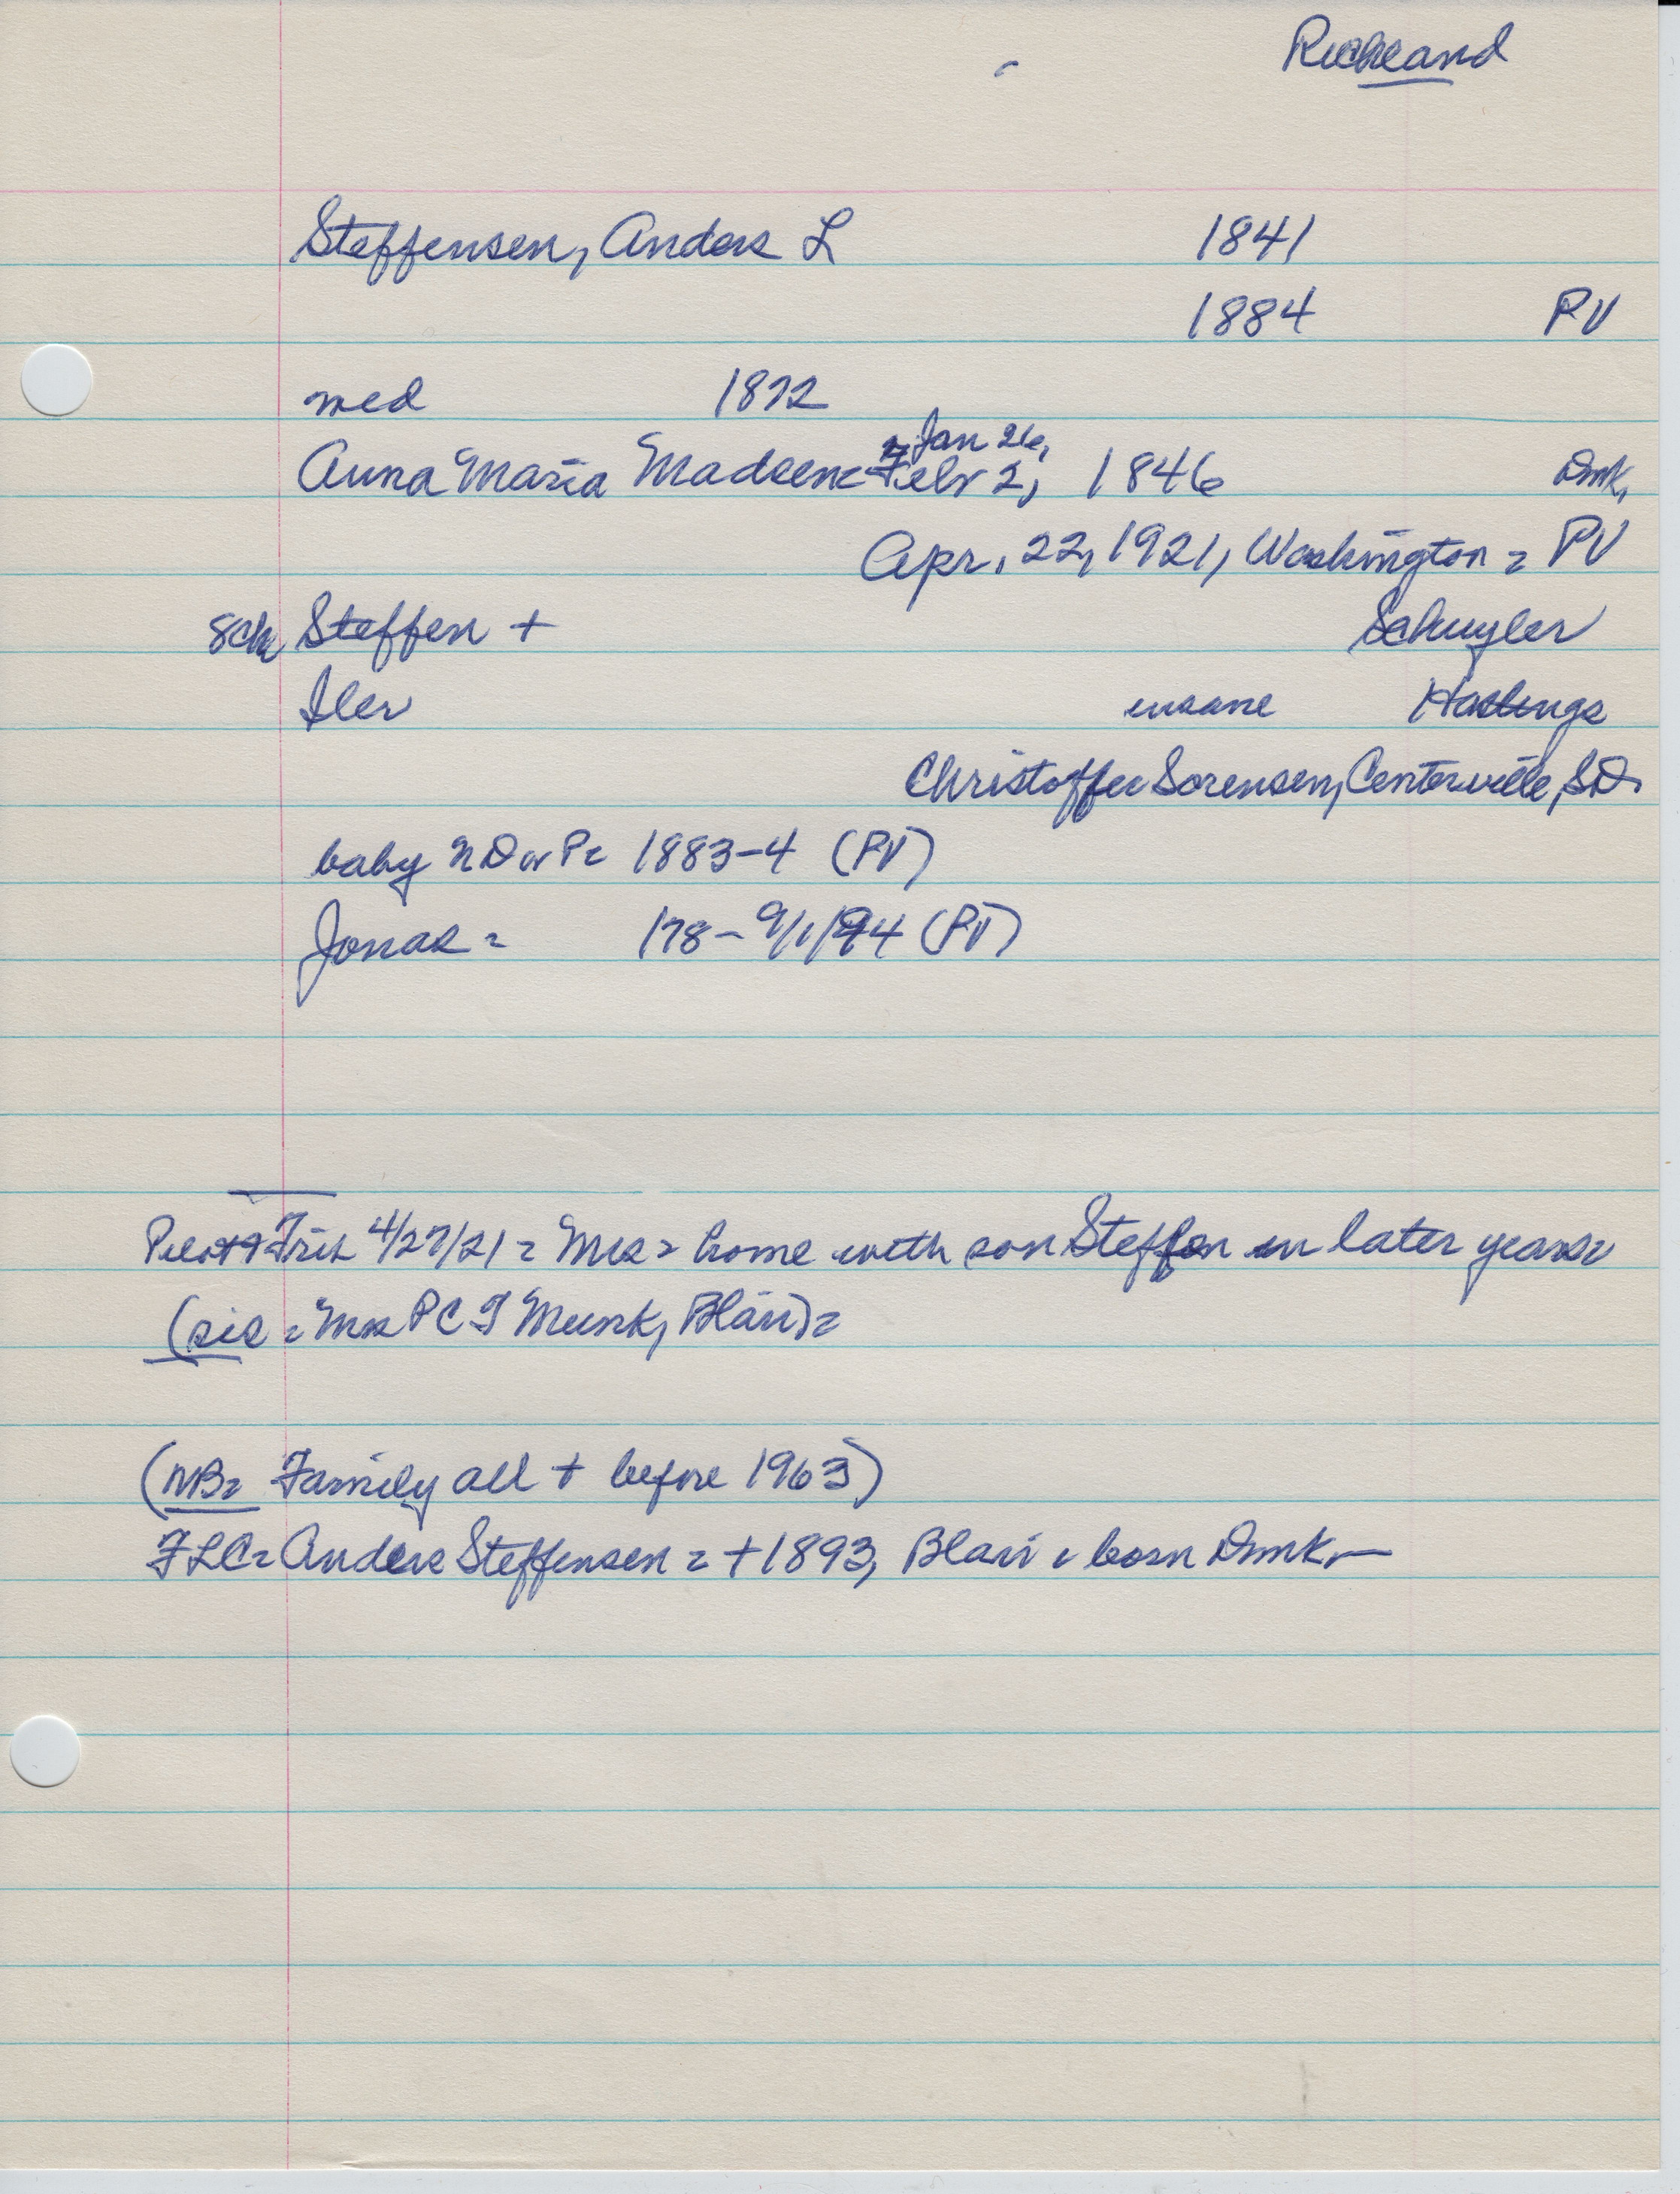 Richland
Steffensen, Anders L 1841
1884 PV
med 1872
Jan 26,
Anna Maria Madsen = Febr 2, 1846 Dmk,
Apr. 22, 1921, Washington = PV
Sch Steffen + Schuyler
Iler insane Hastings
Christoffer Sorensen, Centerville, S.D.
baby 1883-4 (PV)
Jonas = 178 - 9/1/94 (PV)
4/27/21 = Mrs = home with son Steffen in later years
(sis = Mrs P C J Munk, Blair) =
(NB= Family all + before 1963)
FLC = Anders Steffensen = + 1893, Blair = born Dmk